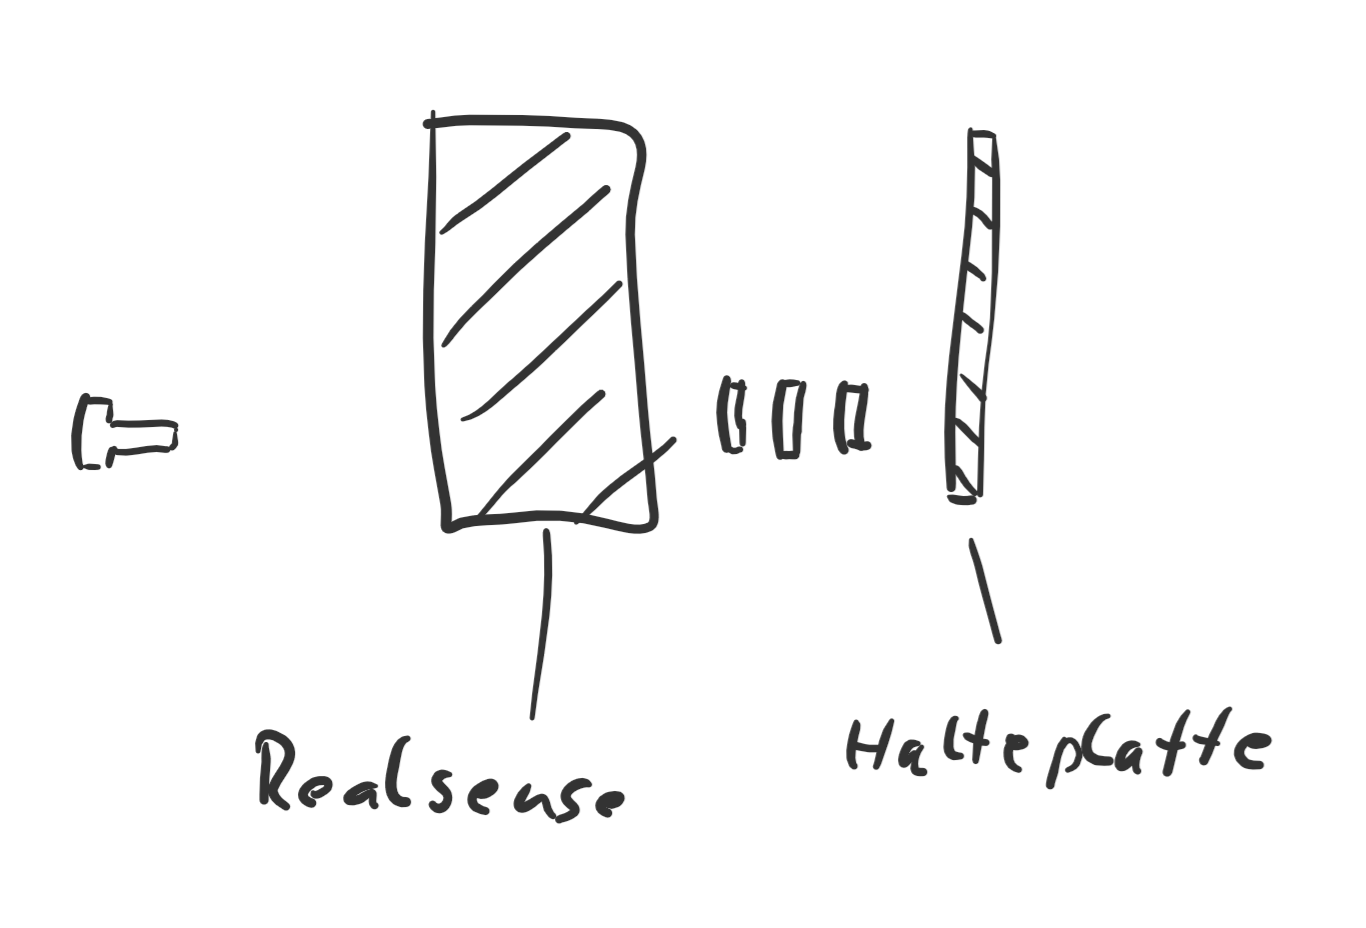 Realsense
Halteplatte